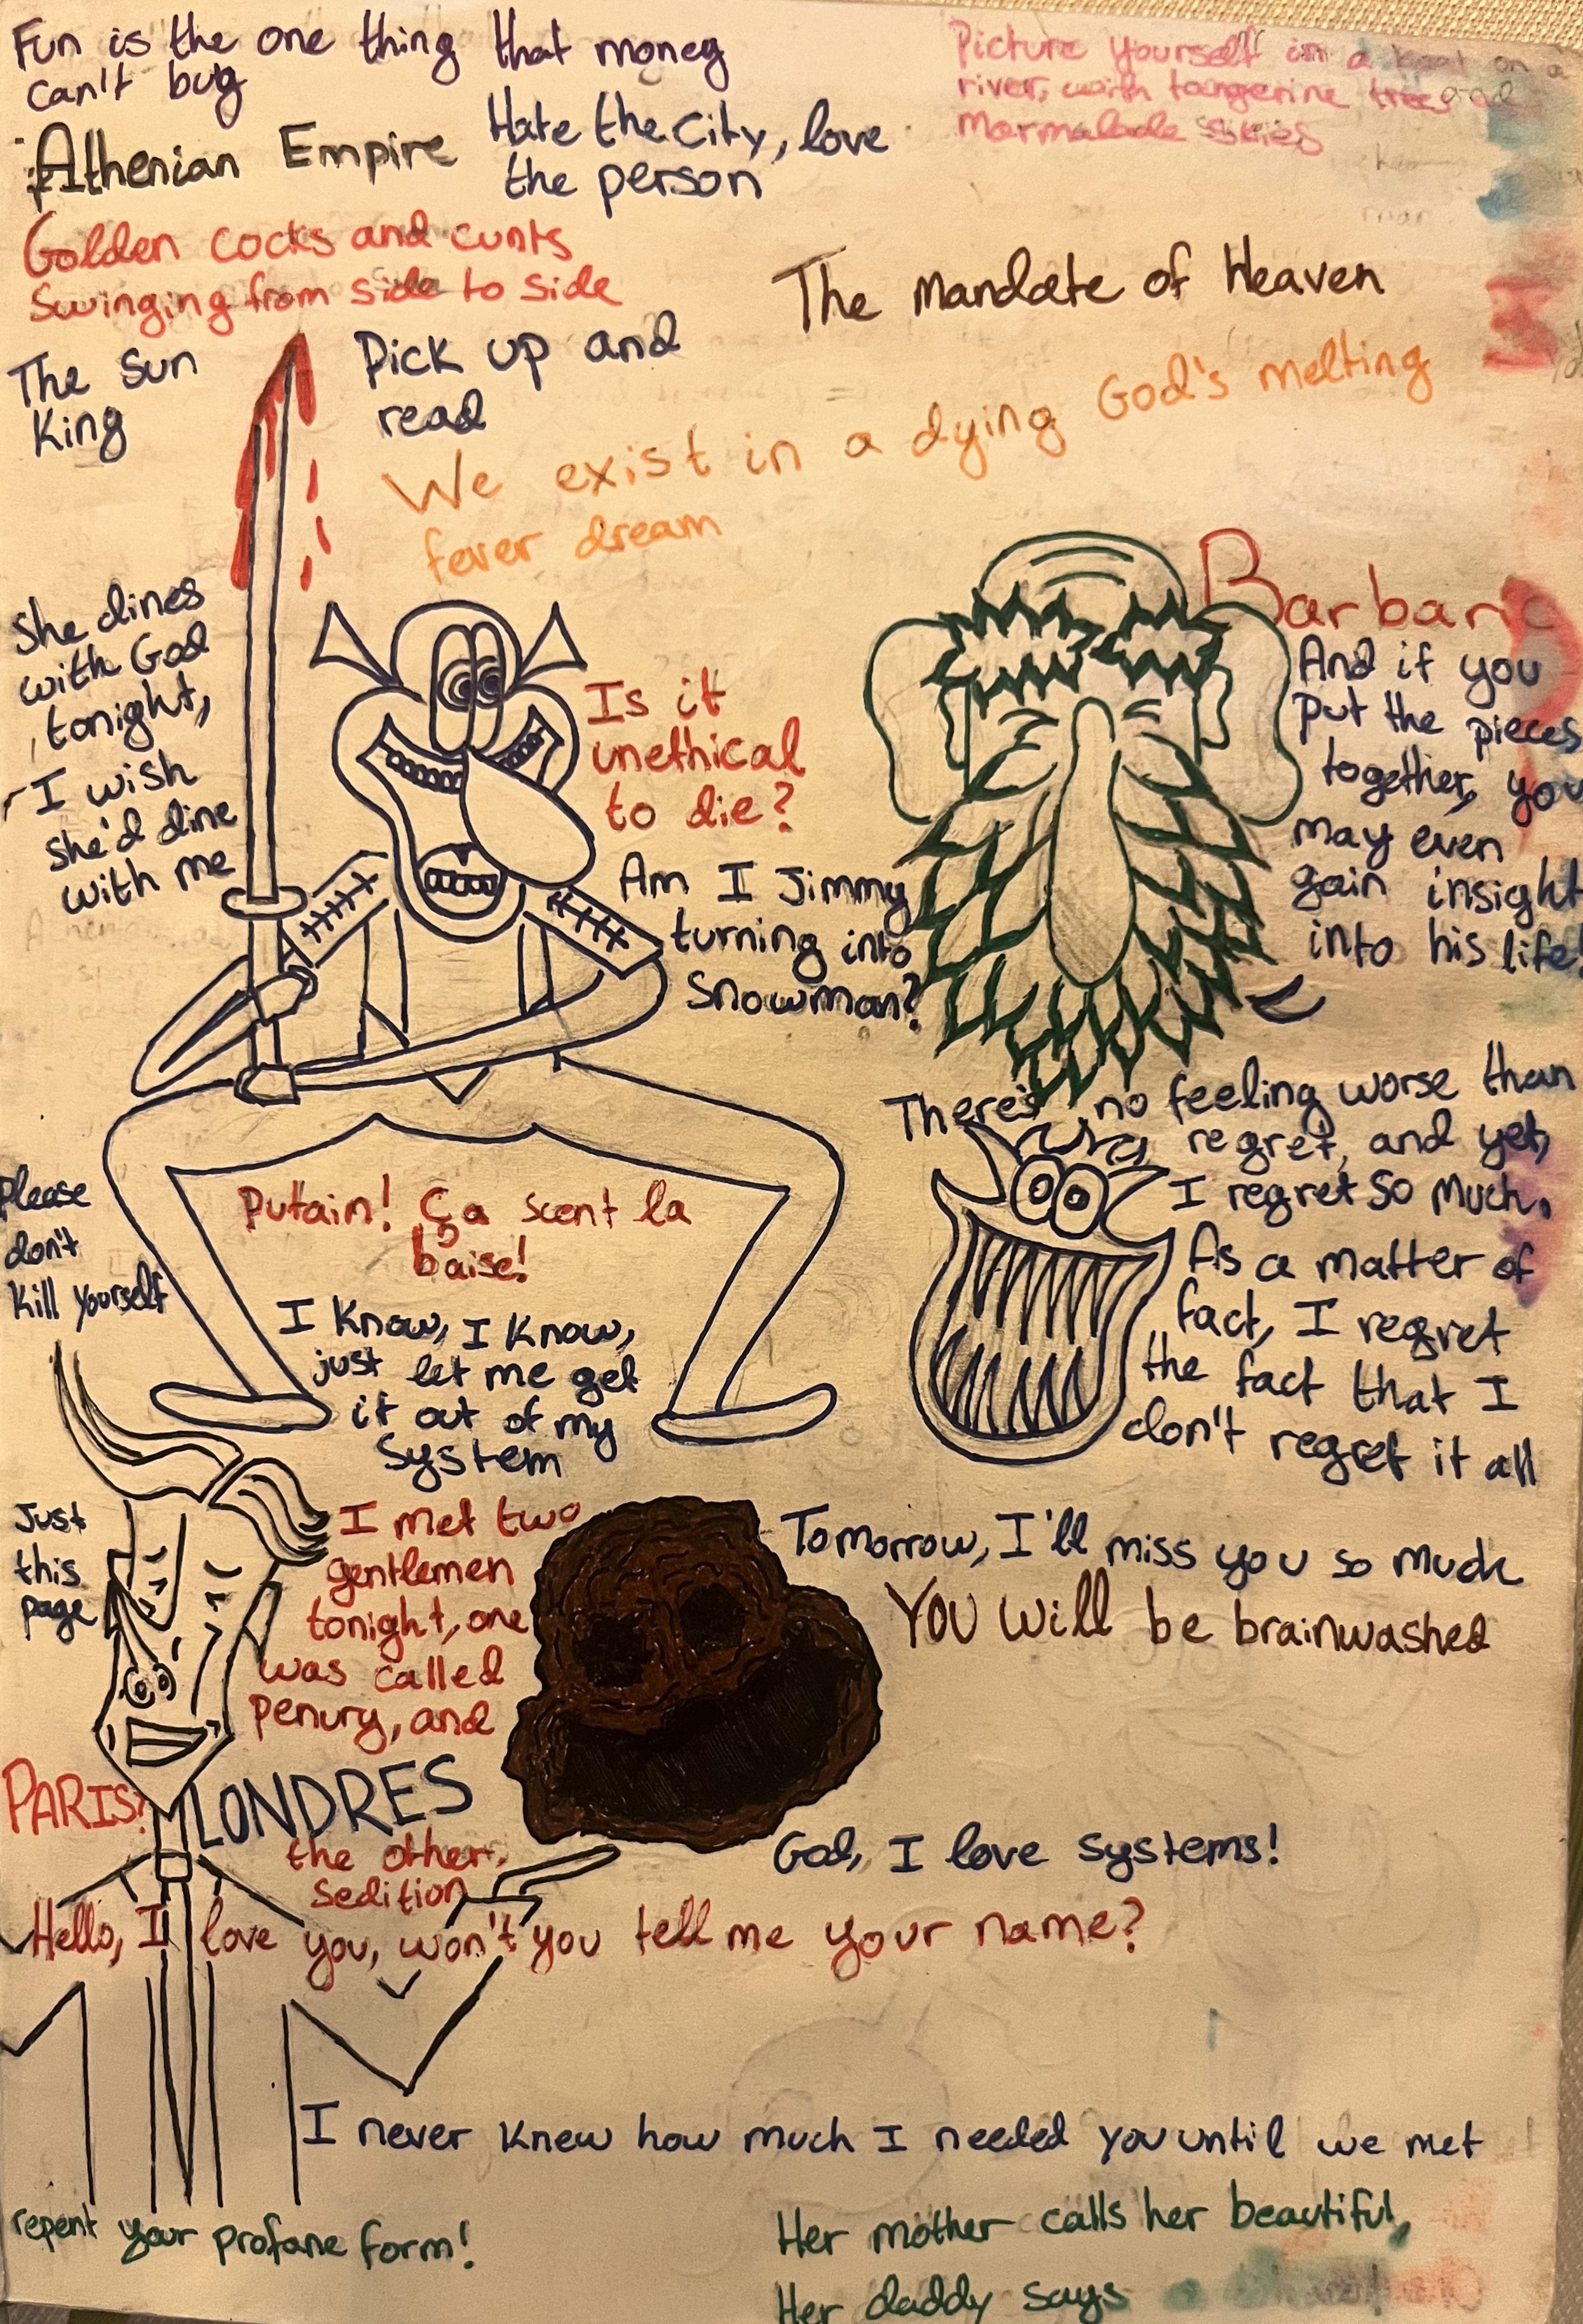 Fun is the one thing that money
can't buy
Picture yourself in a boat on a
river, with tangerine trees and
Marmalade skies
Athenian Empire
Hate the City, love
the person
Golden cocks and cunts
Swinging from side to side
The Mandate of Heaven
The Sun
King
Pick up and
read
We exist in a dying God's melting
fever dream
She dines
with God
tonight,
I wish
She'd dine
with me
Is it
unethical
to die?
Barbaric
And if you
put the pieces
together, you
may even
gain insight
into his life!
Am I Jimmy
turning into
Snowman?
There's no feeling worse than
regret, and yet,
I regret so much.
As a matter of
fact, I regret
the fact that I
don't regret it all
Please
don't
kill yourself
Putain! Ça scent la
baise!
I know, I know,
just let me get
it out of my
system
Just
this
page
I met two
gentlemen
tonight, one
was called
Penury, and
the other,
sedition
Tomorrow, I'll miss you so much
YOU Will be brainwashed
PARIS?
LONDRES
God, I love systems!
Hello, I love you, won't you tell me your name?
I never knew how much I needed you until we met
repent your profane form!
Her mother calls her beautiful,
Her daddy says